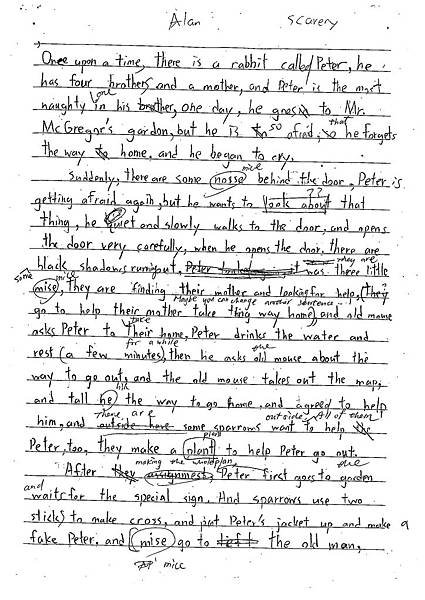 Alan scavery
Once upon a time, there is a rabbit called Peter, he
has four brothers and a mother, and Peter is the most
one
naughty in his brother, one day, he goes to Mr.
that
McGregor's gardon, but he is so afraid, he forgets
the way to home, and he began to cry.
mice
Suddenly, there are some nosse behind the door, Peter is
??
getting afraid again, but he wants to look about that
thing, he quiet and slowly walks to the door, and opens
the door very carefully, when he opens the door, there are
They are
black shadows runing out, Peter it was three little
Some mice
mise, They are finding their mother and looking for help, (They
Maybe you can change another sentence
go to help their mother take thing way home) and old mouse
take
asks Peter to their home, Peter drinks the water and
for a while the
rest (a few minutes), then he asks old mouse about the
way to go out, and the old mouse takes out the map,
him
and tall he the way to go home, and agreed to help
There are outside. All of them
him, and outside here some sparrows want to help the
plan
Peter, too, they make a plant to help Peter go out.
making the whole plan, the
After they assignment, Peter first goes to garden
and
waits for the special sign. And sparrows use two
sticks to make cross, and put Peter's jacket up and make a
fake Peter. and mise go to left the old man,
mice